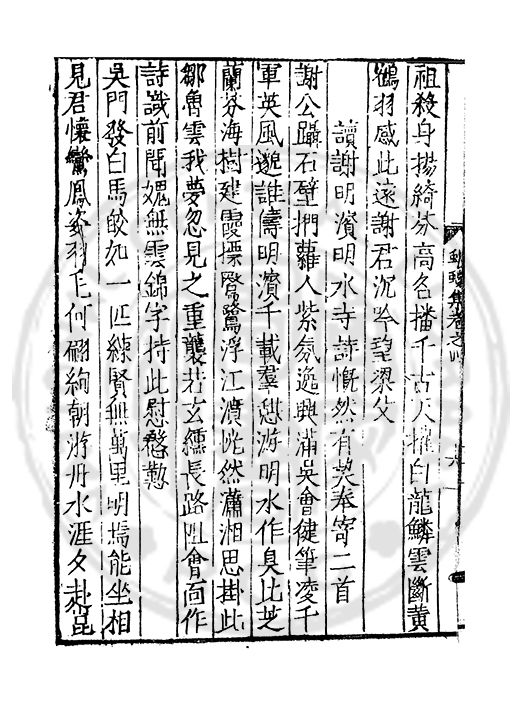 祖殺身揚綺芬高名播千古天攉白龍鱗雲斷黃
鶴羽感此遠謝君沉吟望梁父
讀謝明濱明水寺詩慨然有契奉寄二首
謝公躡石壁捫蘿入紫氛逸興滿吳會健筆凌千
軍英風邈誰儔明濱千載羣愆游明水作臭比芝
蘭芬海樹建霞標鴛鷺浮江濆恍然瀟湘思掛此
鄒魯雲我夢忽見之重襲若玄纁長路阻會面作
詩識前聞媿無雲錦字持此慰慇懃
吳門發白馬皎如一匹練賢無萬里明焉能坐相
見君懷鸞鳳姿羽毛何翩絢朝游丹水涯夕卦崑
集卷之四
六